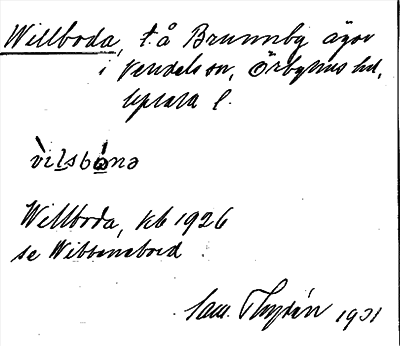 Willboda, t. å Brunnby ägor
i Vendels sn, Örbyhus hd,
Uppsala l.
Willboda, kb 1926
se Wibbensbod
Sam. Thysén 1931